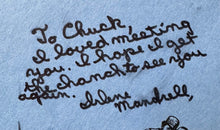 To Chuck,
I loved meeting
you. I hope I get
the chanch to see you
again.
Arlene
Manshell,